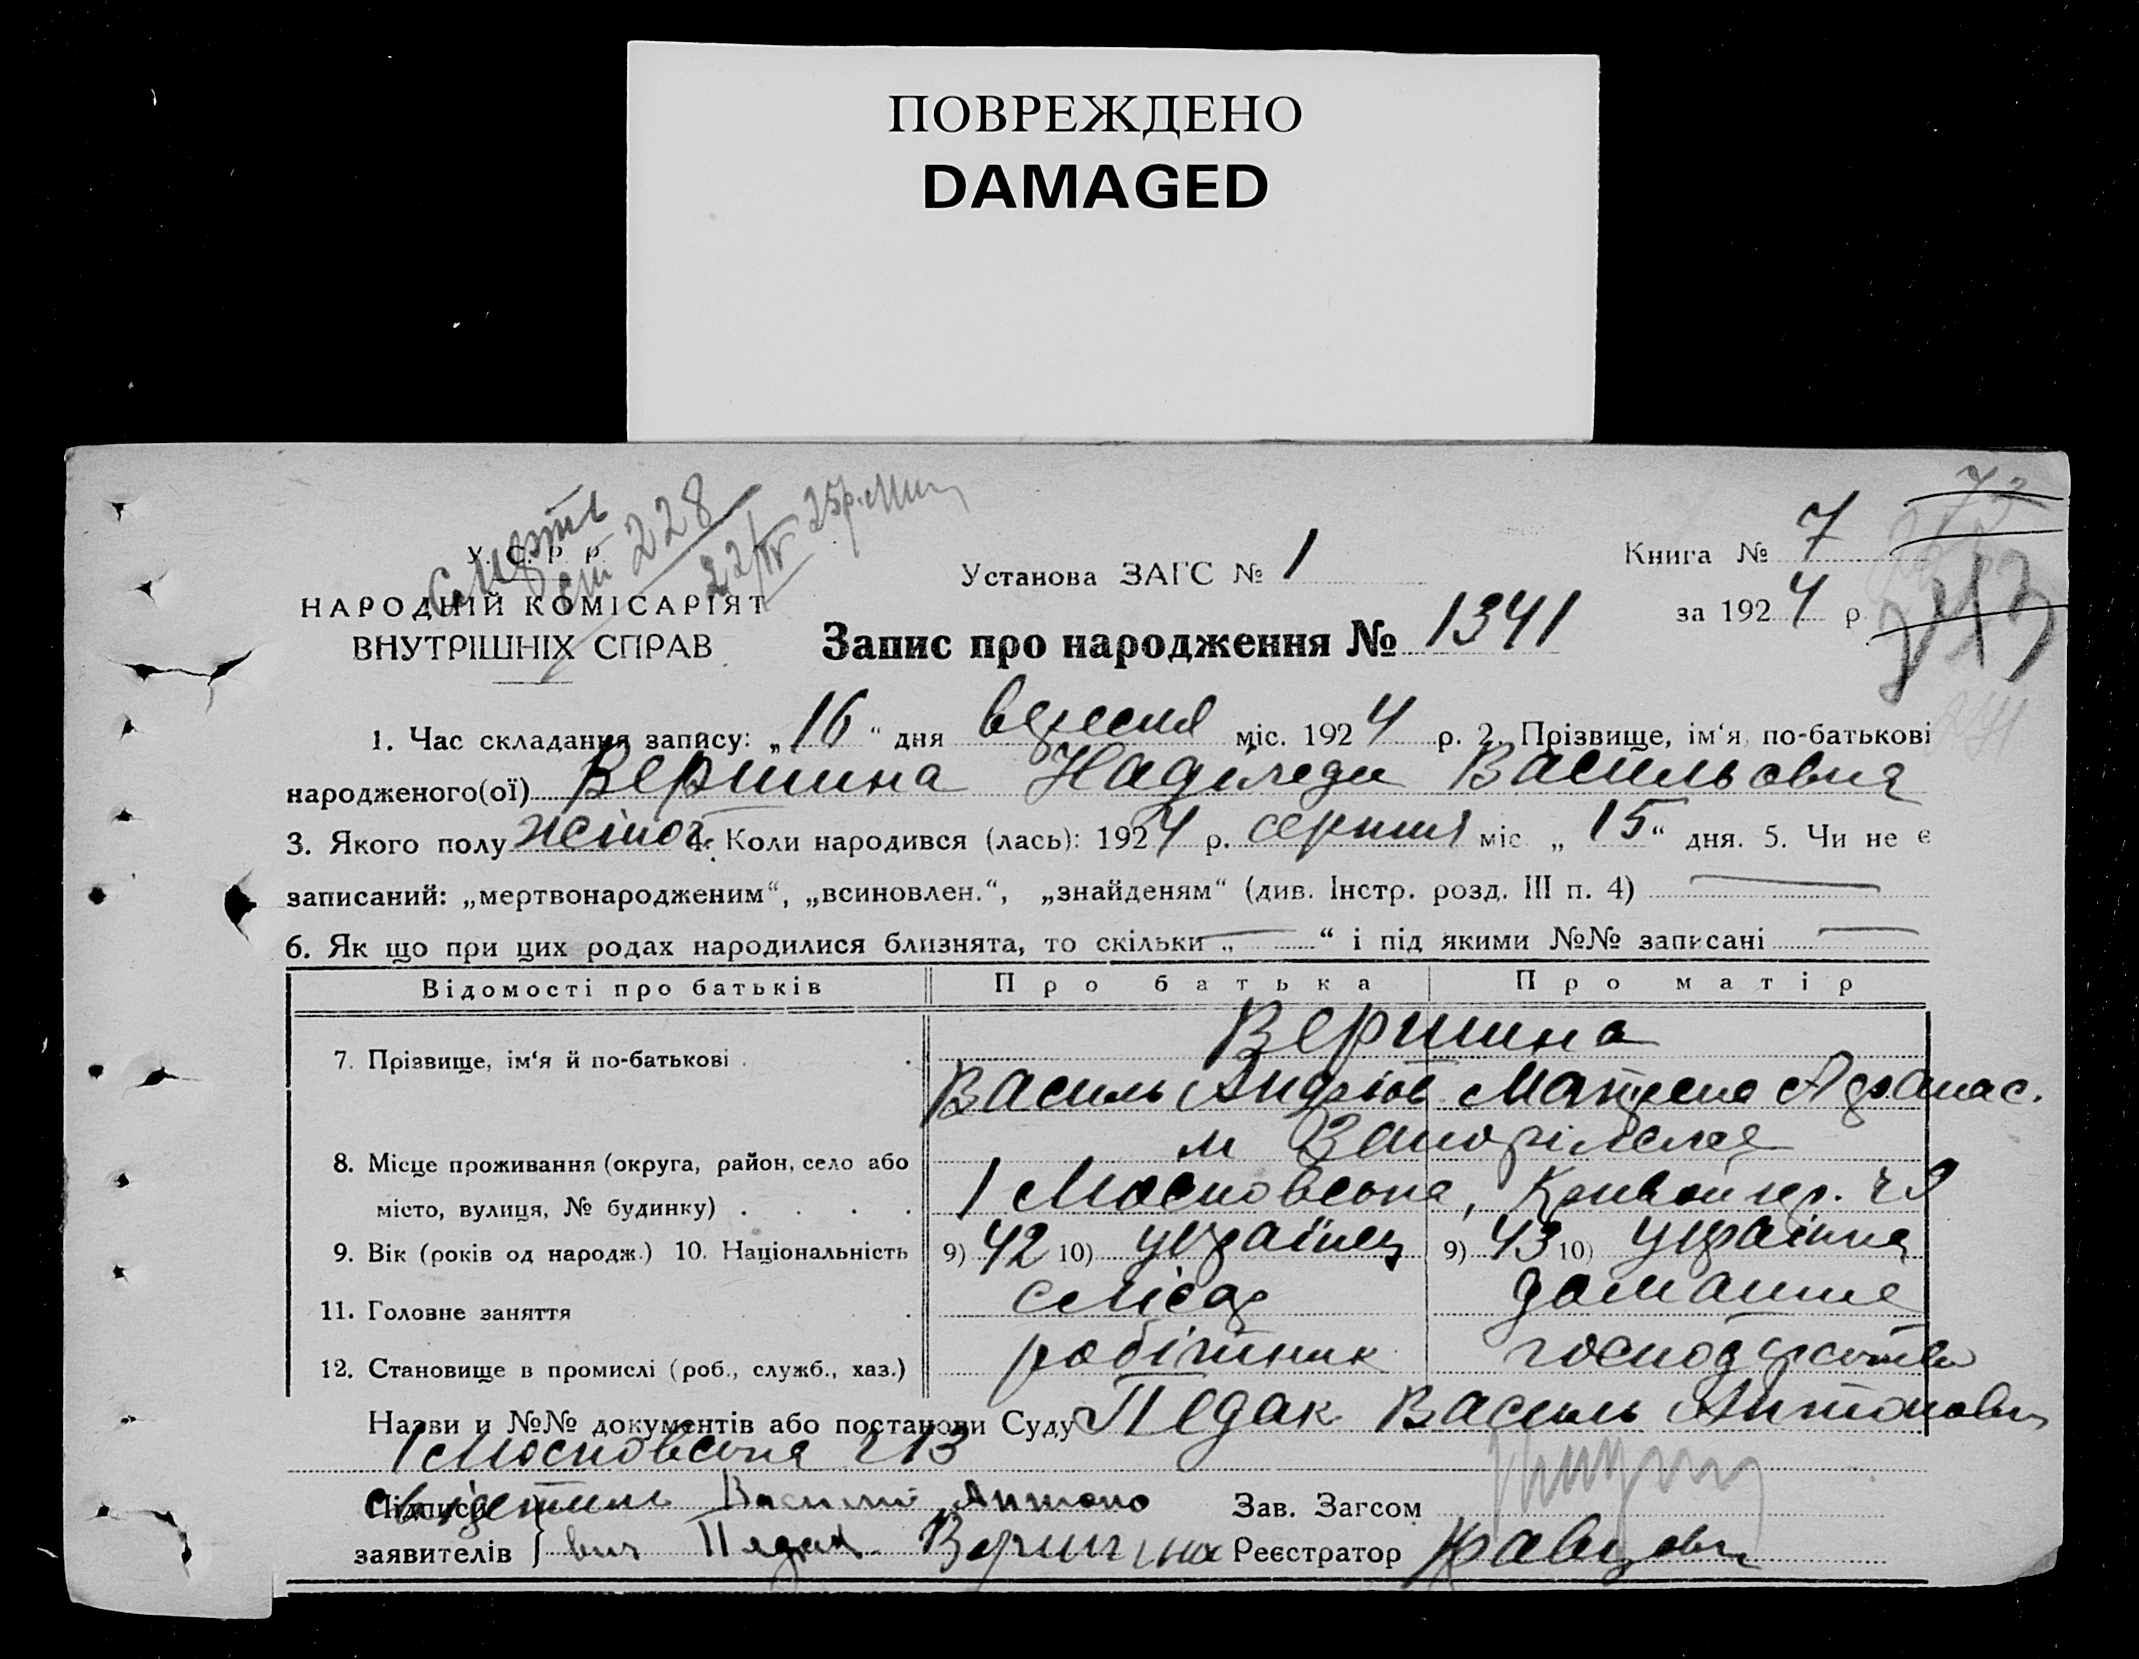 ПОВРЕЖДЕНО
DAMAGED
Смерть
228
22/IV 25р.
У. С. Р. Р.
НАРОДНІЙ КОМІСАРІЯТ
ВНУТРІШНІХ СПРАВ
Установа ЗАГС № 1
Запис про народження № 1341
Книга № 7
за 1924 р.
73
1. Час складання запису: „16“ дня вересня міс. 1924 р. 2. Прізвище, ім‘я, по-батькові
народженого(ої) Вершина Васильовня
3. Якого полу жіноч. 4. Коли народився (лась): 1924 р. серпня міс. „15“ дня. 5. Чи не є
записаний: „мертвонародженим“, „всиновлен.“, „знайденям“ (див. Інстр. розд. III п. 4) —
6. Як що при цих родах народилися близнята, то скільки „—“ і під якими №№ записані —
Відомості про батьків Про батька Про матір
7. Прізвище, ім‘я й по-батькові . . Вершина
Василь Андріїов. Мотрена Афанас.
м Запоріжжя
8. Місце проживання (округа, район, село або
місто, вулиця, № будинку) . . . . 1 Московська,
9. Вік (років од народж.) 10. Національність 9) 42 10) українец 9) 43 10) українка
11. Головне заняття . слісар домашнє
12. Становище в промислі (роб., служб., хаз.) робітник господарство
Назви и №№ документів або постанови Суду Педак Василь Антонович
1 Московська 213
Підписи свидетили Василий Антоно
заявителів } вич Педак Вершина
Зав. Загсом
Реєстратор Кравцова